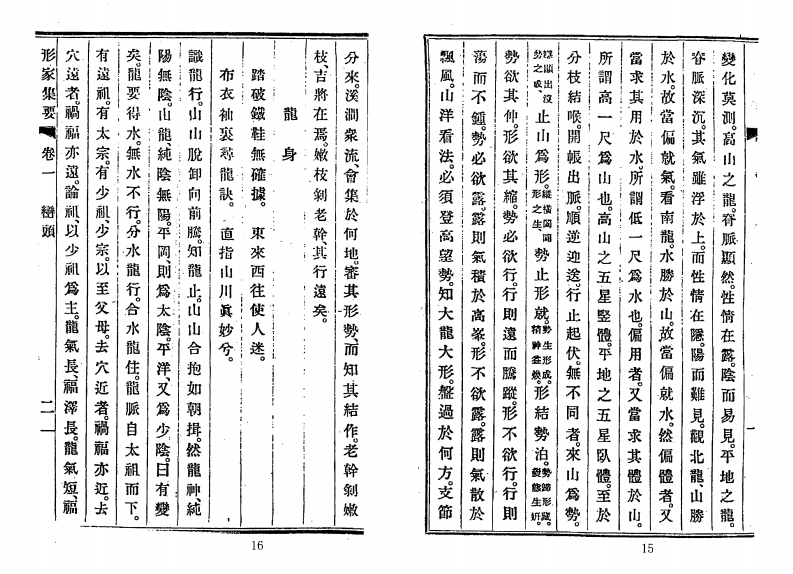 變化莫測。高山之龍。脊脈顯然。性情在露。陰而易見。平地之龍。
脊脈深沉。其氣雖浮於上。而性情在隱。陽而難見。觀北龍。山勝
於水。故當偏就氣。看南龍。水勝於山。故當偏就水。然偏體者。又
當求其用於水。所謂低一尺爲水也。偏用者。又當求其體於山。
所謂高一尺爲山也。高山之五星豎體。平地之五星臥體。至於
分枝結喉。開帳出脈。順逆迎送。行止起伏。無不同者。來山爲勢。
隱顯出沒勢之成、止山爲形。縱橫闔闢形之生、勢止形就。勢生形成。精神益煥。形結勢泊。勢蹄形藏。發態生妍。
勢欲其伸。形欲其縮。勢必欲行。行則遠而騰蹤。形不欲行。行則
蕩而不鍾。勢必欲露。露則氣積於高峯。形不欲露。露則氣散於
飄風。山洋看法。必須登高望勢。知大龍大形。盤過於何方。支節
15
分來。溪澗衆流、會集於何地。審其形勢、而知其結作。老幹剝嫩
枝、吉將在焉。嫩枝剝老幹、其行遠矣。
龍身
踏破鐵鞋無確據。東來西往使人迷。
布衣袖裏尋龍訣。直指山川眞妙兮。
識龍行。山山脫卸向前騰。知龍止。山山合抱如朝揖。然龍神、純
陽無陰。山龍、純陰無陽。平岡、則爲太陰。平洋、又爲少陰。曰有變
矣。龍要得水。無水不行。分水龍行。合水龍住。龍脈自太祖而下。
有遠祖。有太宗。有少祖、少宗。以至父母。去穴近者。禍福亦近。去
穴遠者。禍福亦遠。論祖、以少祖爲主。龍氣長、福澤長。龍氣短、福
形家集要
卷一
巒頭
二一
16